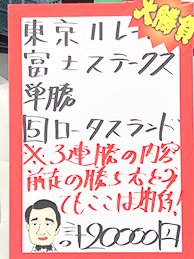 東京11レース
大勝負
富士ステークス
単勝
5 ロータスランド
※3連勝の内容
前走の勝ち方を見
てもここは期待!
計20000円